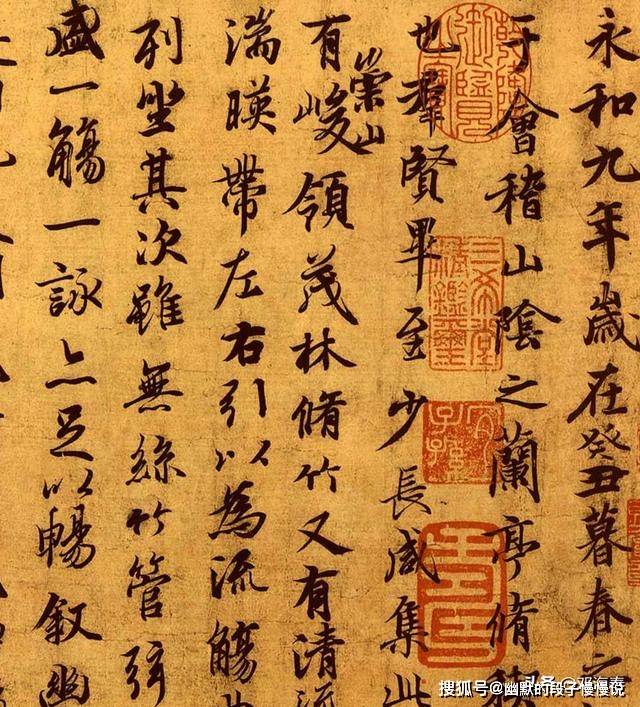 永和九年歲在癸丑暮春之
于會稽山陰之蘭亭脩禊
也羣賢畢至少長咸集此
有崇山峻領茂林脩竹又有清流
湍暎帶左右引以為流觴
列坐其次雖無絲竹管弦
盛一觴一詠亦足以暢敘幽
三希堂
精鑑璽
宜
子孫
搜狐号@幽默的段子慢慢说